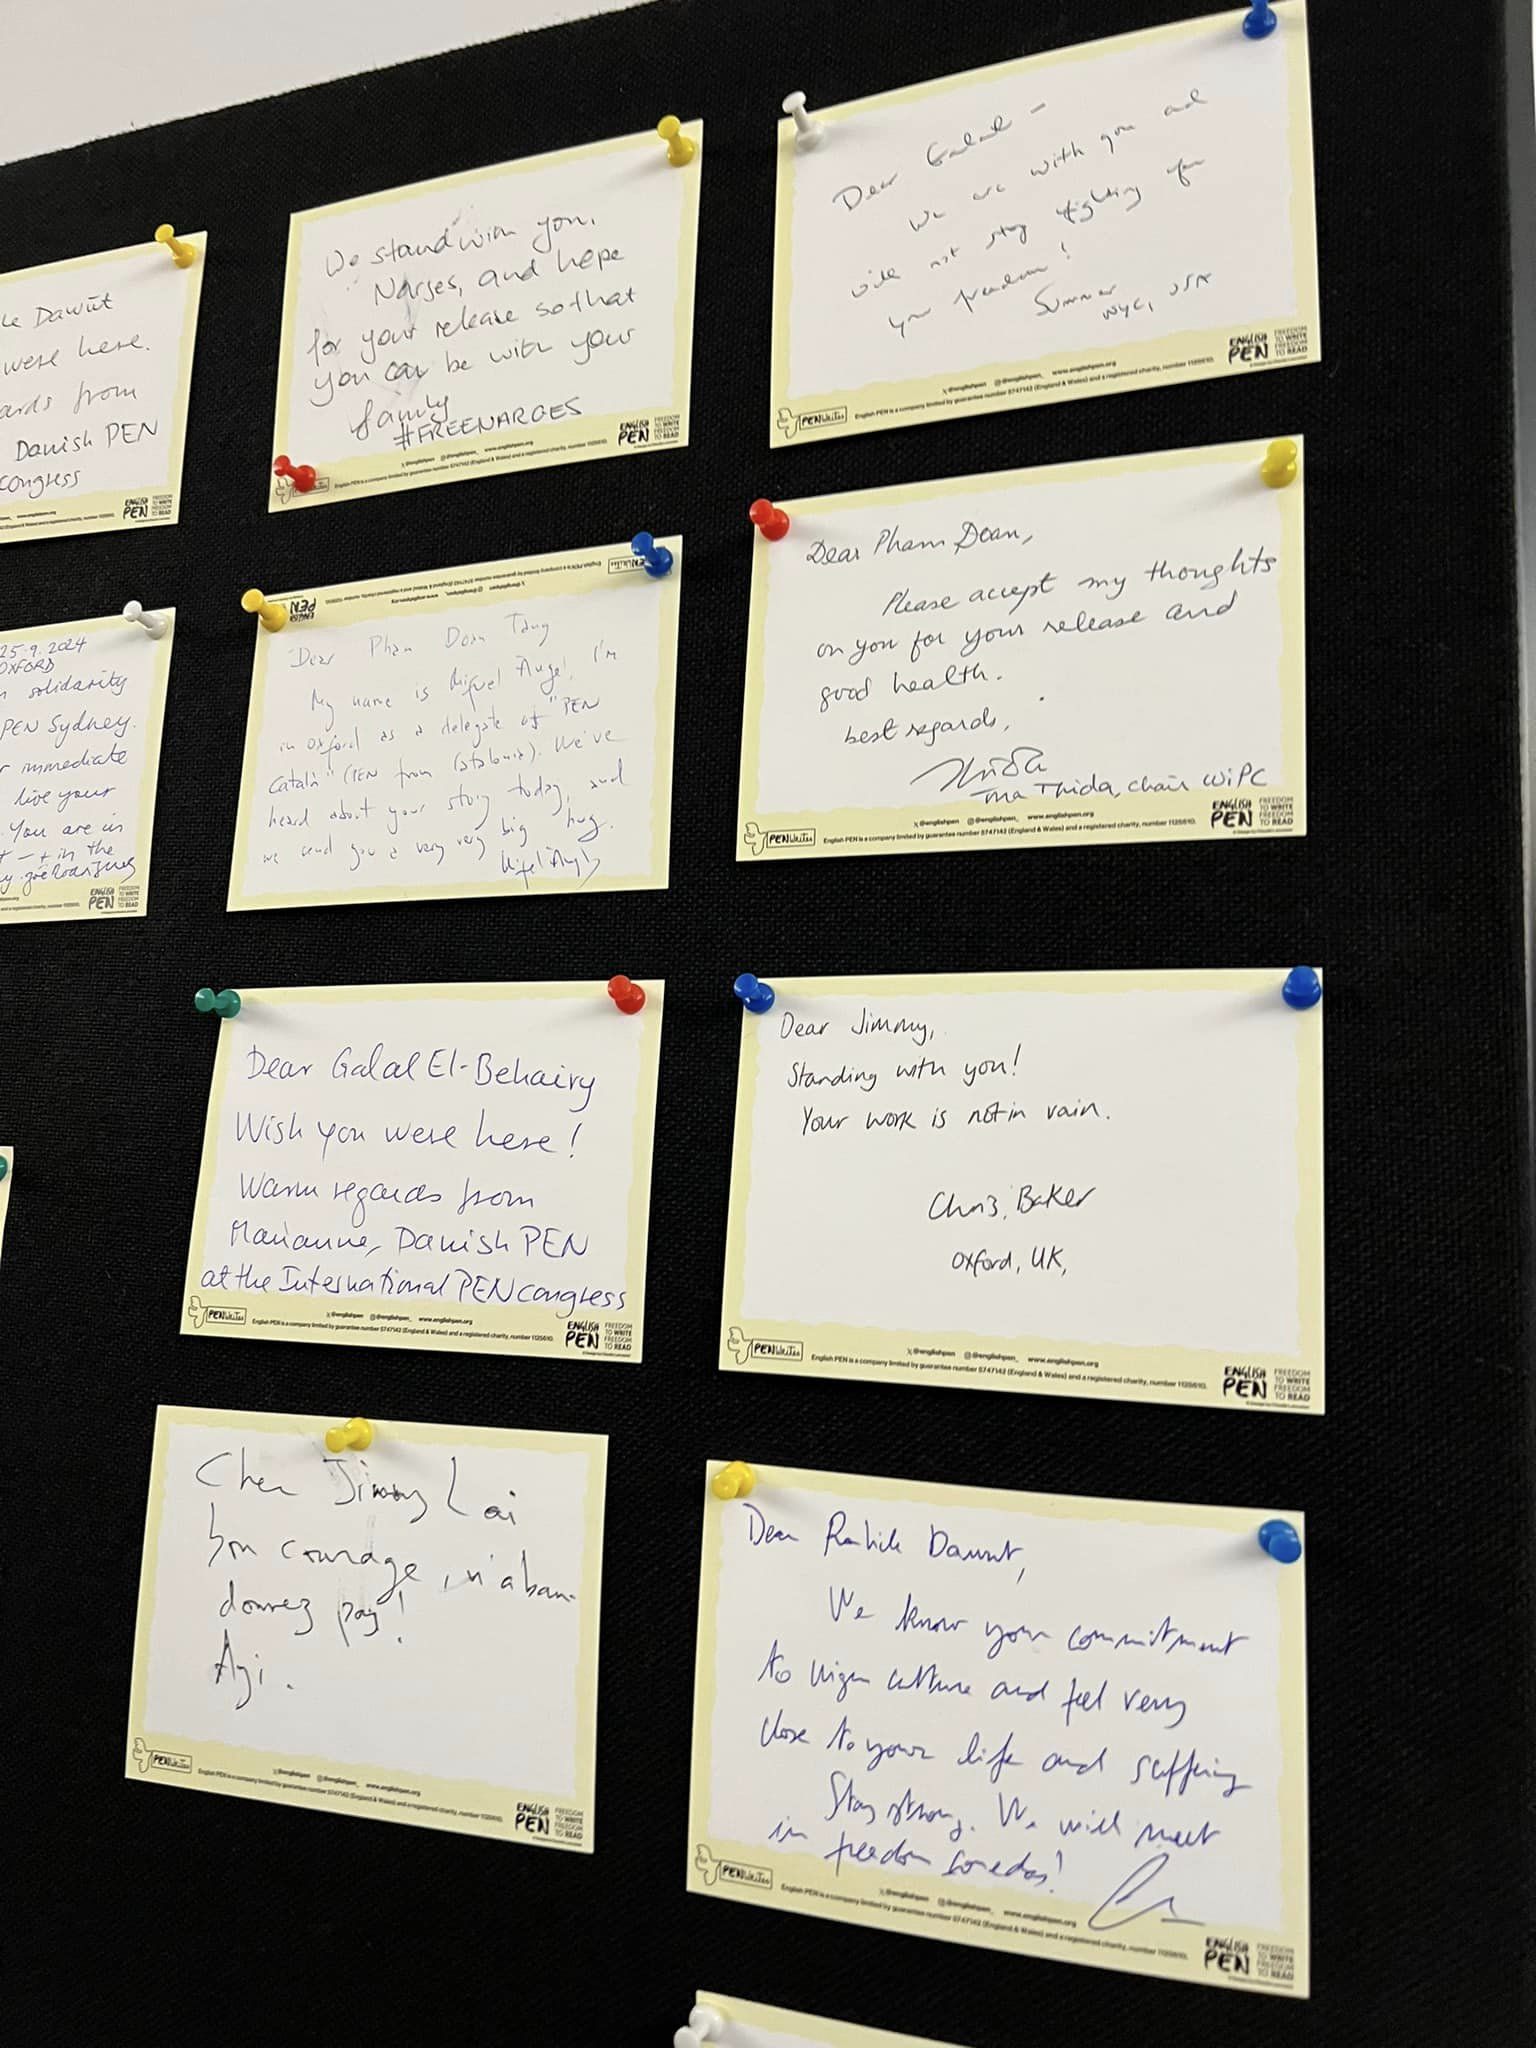 Dawut
were here.
from
Danish PEN
congress
ENGLISH PEN
FREEDOM TO WRITE FREEDOM TO READ
We stand with you,
Narges, and hope
for your release so that
you can be with your
family
#FREENARGES
@englishpen @englishpen_ www.englishpen.org
English PEN is a company limited by guarantee number 5747142 (England & Wales) and a registered charity, number 1125610.
ENGLISH PEN
FREEDOM TO WRITE FREEDOM TO READ
Dear Galal –
We are with you and
will not stop fighting for
your freedom!
Summer
NYC, USA
@englishpen @englishpen_ www.englishpen.org
PENWrites
English PEN is a company limited by guarantee number 5747142 (England & Wales) and a registered charity, number 1125610.
ENGLISH PEN
FREEDOM TO WRITE FREEDOM TO READ
25.9.2024
OXFORD
solidarity
PEN Sydney.
immediate
live your
You are in
in the
ENGLISH PEN
FREEDOM TO WRITE FREEDOM TO READ
Dear Pham Doan Trang
My name is Miquel Àngel, I'm
in Oxford as a delegate of "PEN
Català" (PEN from Catalonia). We've
heard about your story today, and
we send you a very very big hug.
Miquel Àngel
Dear Pham Doan,
Please accept my thoughts
on you for your release and
good health.
best regards,
Ma Thida, Chair WiPC
@englishpen @englishpen_ www.englishpen.org
PENWrites
English PEN is a company limited by guarantee number 5747142 (England & Wales) and a registered charity, number 1125610.
ENGLISH PEN
FREEDOM TO WRITE FREEDOM TO READ
Dear Galal El-Behairy
Wish you were here!
Warm regards from
Marianne, Danish PEN
at the International PEN congress
@englishpen @englishpen_ www.englishpen.org
PENWrites
English PEN is a company limited by guarantee number 5747142 (England & Wales) and a registered charity, number 1125610.
ENGLISH PEN
FREEDOM TO WRITE FREEDOM TO READ
Dear Jimmy,
Standing with you!
Your work is not in vain.
Chris Baker
Oxford, UK,
@englishpen @englishpen_ www.englishpen.org
PENWrites
English PEN is a company limited by guarantee number 5747142 (England & Wales) and a registered charity, number 1125610.
ENGLISH PEN
FREEDOM TO WRITE FREEDOM TO READ
Cher Jimmy Lai
bon courage, n'aban-
donnez pas!
Ayi.
@englishpen @englishpen_ www.englishpen.org
PENWrites
English PEN is a company limited by guarantee number 5747142 (England & Wales) and a registered charity, number 1125610.
ENGLISH PEN
FREEDOM TO WRITE FREEDOM TO READ
Dear Rahile Dawut,
We know your commitment
to Uigur culture and feel very
close to your life and suffering
Stay strong. We will meet
in freedom
@englishpen @englishpen_ www.englishpen.org
PENWrites
English PEN is a company limited by guarantee number 5747142 (England & Wales) and a registered charity, number 1125610.
ENGLISH PEN
FREEDOM TO WRITE FREEDOM TO READ